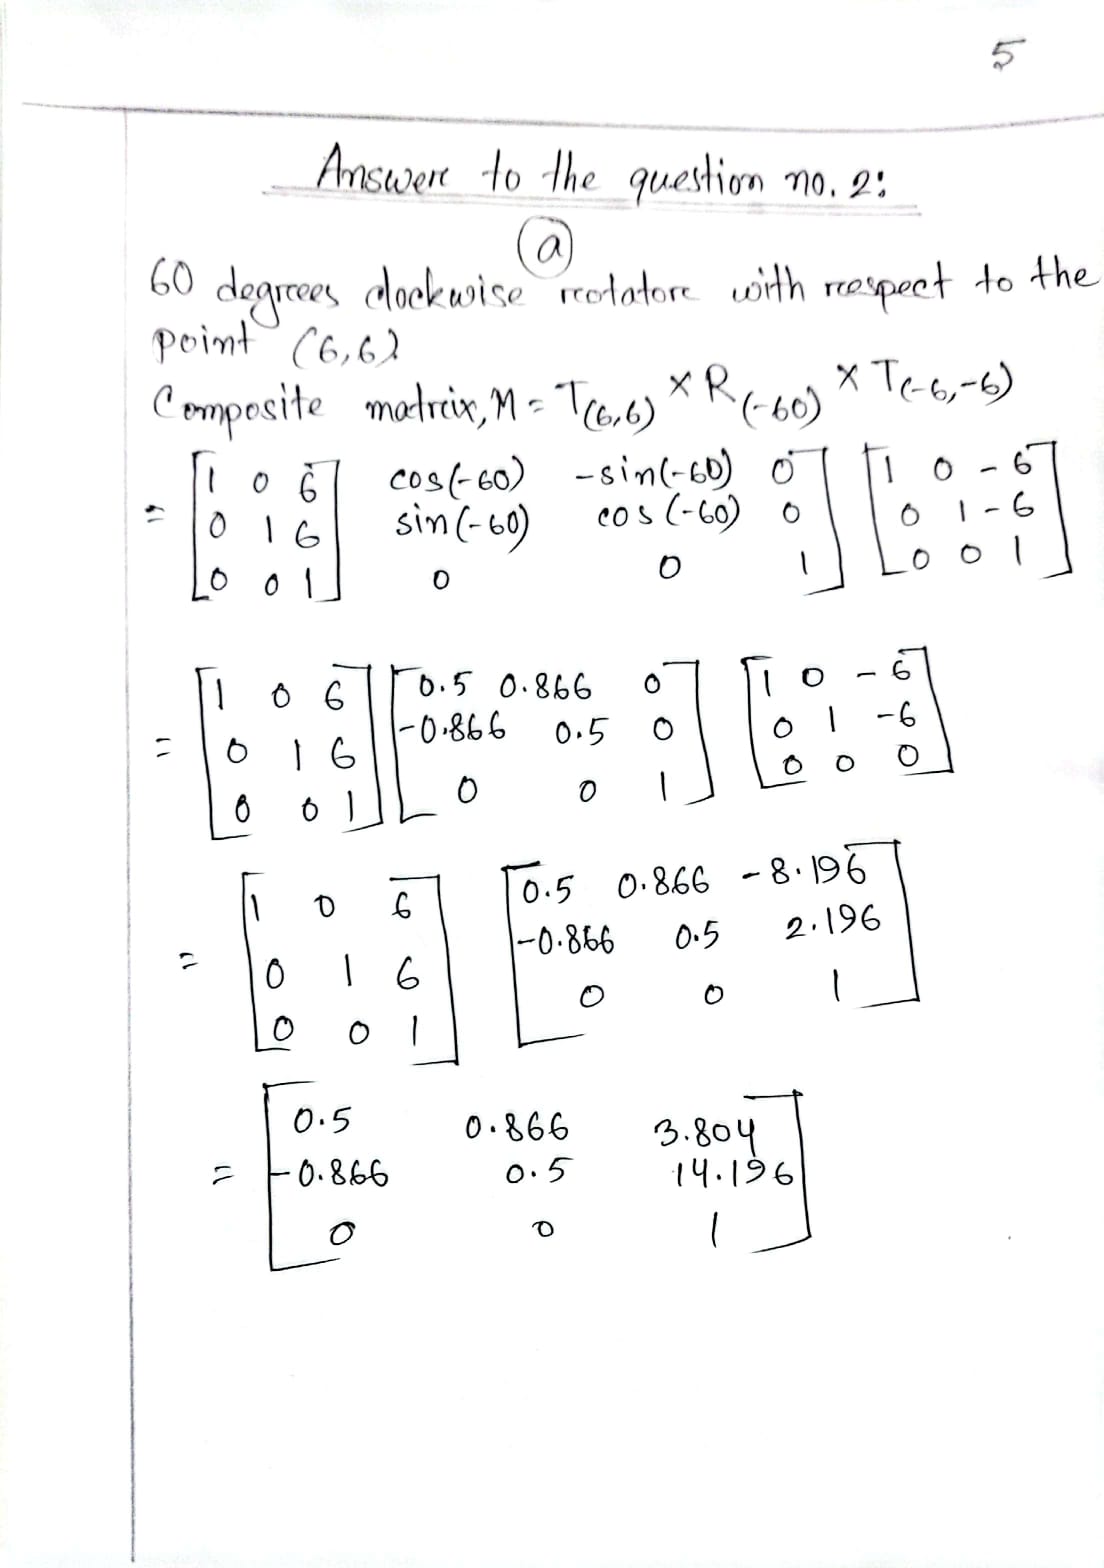 5
Answere to the question no. 2:
(a)
60 degrees clockwise rotatore with respect to the
point (6,6)
Composite matrix, M = T(6,6) × R(-60) × T(-6,-6)
= [1 0 6 cos(-60) -sin(-60) 0] [1 0 -6
0 1 6 sin(-60) cos(-60) 0 0 1 -6
0 0 1] 0 0 1] 0 0 1]
= [1 0 6] [0.5 0.866 0] [1 0 -6]
0 1 6 -0.866 0.5 0 0 1 -6
0 0 1 0 0 1 0 0 0
= [1 0 6] [0.5 0.866 -8.196]
0 1 6 -0.866 0.5 2.196
0 0 1 0 0 1
= [0.5 0.866 3.804]
-0.866 0.5 14.196
0 0 1